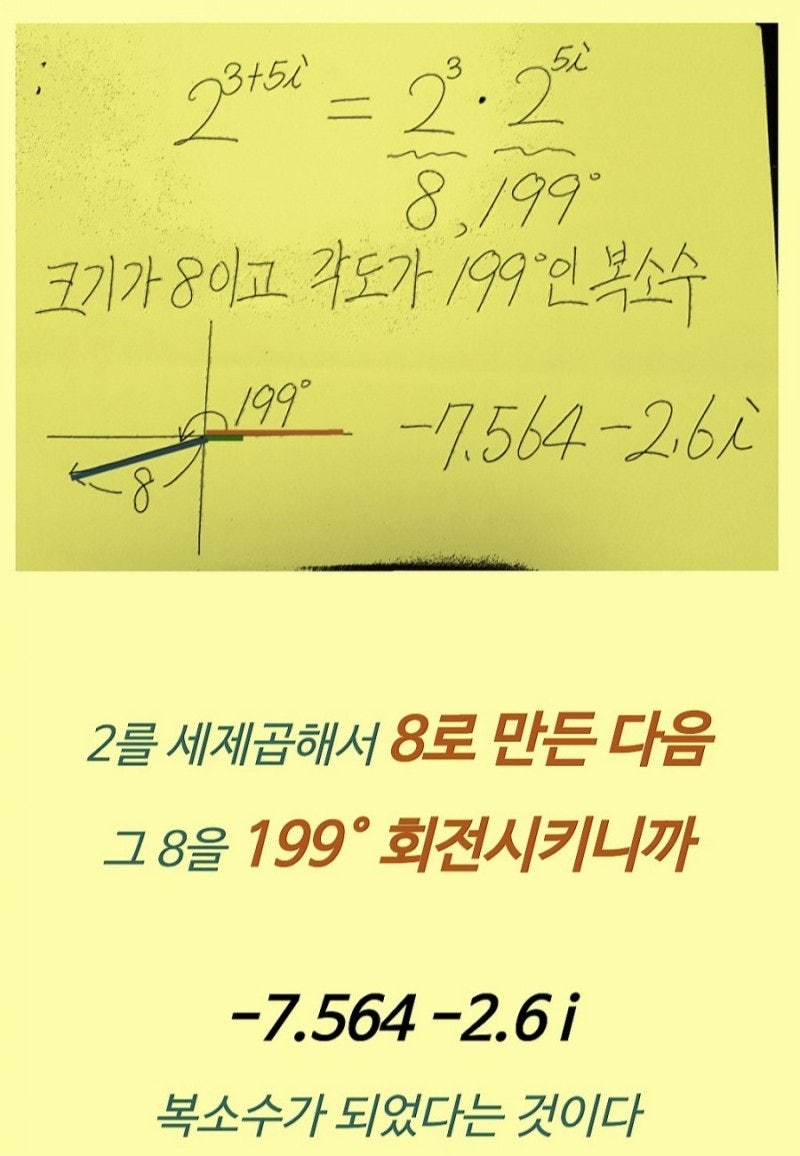 2^{3+5i} = 2^3 · 2^{5i}
8, 199°
크기가 8이고 각도가 199°인 복소수
199°
8
-7.564 -2.6i
2를 세제곱해서 8로 만든 다음
그 8을 199° 회전시키니까
-7.564 -2.6 i
복소수가 되었다는 것이다